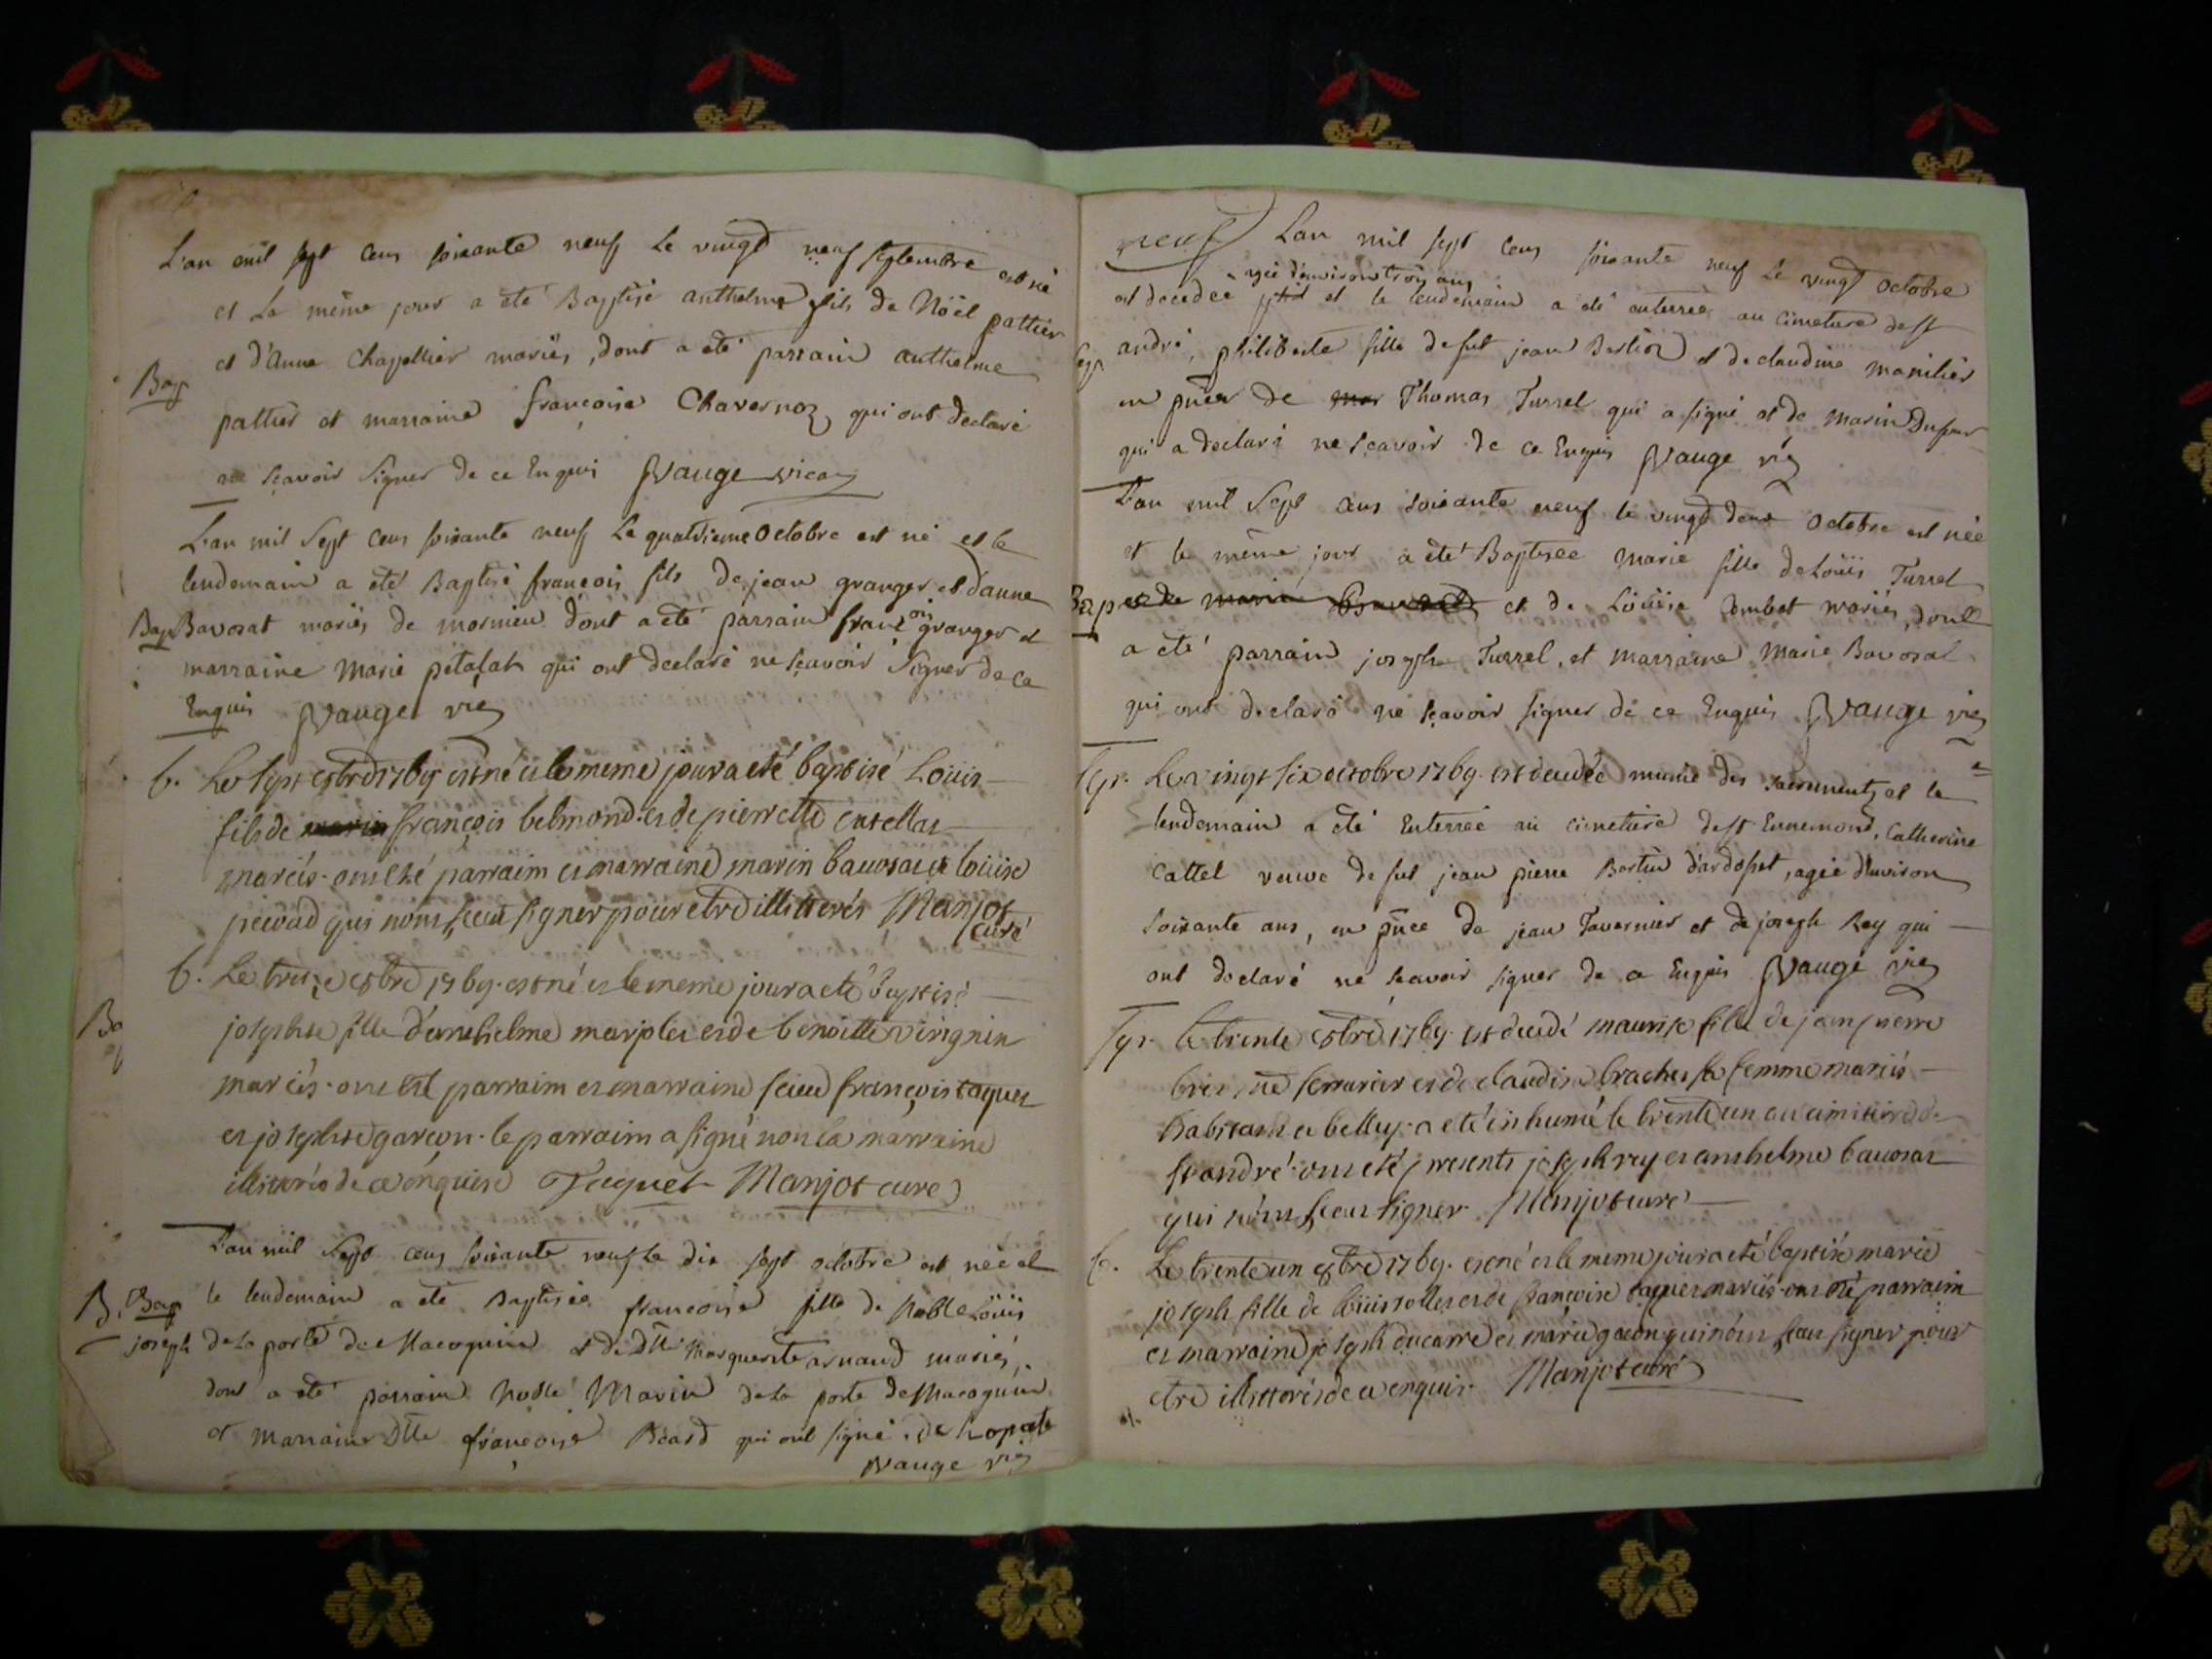 L'an mil sept cens soixante neuf le vingt neuf septembre est né
et le même jour a été Baptisé anthelme fils de Noël pattier
et d'Anne Chapellier mariés, dont a été parrain anthelme
Bap
pattier et marraine françoise Chavornoz qui ont declaré
ne sçavoir signer de ce Enquis Vauge vic
L'an mil Sept cens soixante neuf le quatrieme Octobre est né et le
lendemain a été Baptisé françois fils de jean granger et d'anne
Bap Bavosat mariés de mornieu dont a été parrain françois granger et
marraine Marie pitafat qui ont declaré ne sçavoir Signer de ce
Enquis Vauge vic
b. Le sept 8bre 1769 est né et le meme jour a eté baptisé Loüis
fils de françois belmond et de pierrette
mariés. ont eté parraim et marraine marin bavosat et loüise
qui n'ont sceut signer pour etre illitterés Manjot
curé
b. Le treize 8bre 1769. est né et le meme jour a eté baptisé
josephte fille d'anthelme marjolet et de benoitte virignin
mariés. ont eté parraim et marraine sieur françois taquet
et josephte garçon. le parraim a signé non la marraine
illitterée de ce enquise Taquet Manjot curé
L'an mil Sept cens soixante neuf le dix sept octobre est née et
B. Bap le lendemain a été Baptisée françoise fille de Noble Loüis
joseph de la porte de Macognin et de Dlle Marguerite arnaud mariés,
dont a été parrain Noble Marin de la porte de Macognin
et marraine Dlle françoise Béard qui ont signé. De Laporte
Vauge vic
neuf L'an mil sept cens soixante neuf le vingt Octobre
agée d'environ trois ans
est decedée et le lendemain a été enterrée au cimetiere de st
Sep. andré, philiberte fille de fut jean Bertier et de claudine manilier
en pñce de Thomas Turrel qui a signé et de Marin Dufour
qui a declaré ne sçavoir de ce Enquis Vauge vic
L'an mil Sept cens soixante neuf le vingt deux Octobre est née
et le même jour a été Baptisée Marie fille de Loüis Turrel
Bap et de marie et de Loüise Combet mariés, dont
a été parrain joseph Turrel, et marraine Marie Bavosat
qui ont declaré ne sçavoir signer de ce Enquis Vauge vic
Sep. Le vingt six octobre 1769. est decedée munie des sacrements et le
lendemain a été Enterrée au cimetiere de st Ennemond, Catherine
Cattel veuve de fut jean pierre Bertin d'ardosset, agée d'environ
soixante ans, en pñce de jean Tavernier et de joseph Rey qui
ont declaré ne scavoir signer de ce Enquis Vauge vic
Sep. le trente 8bre 1769. est decedé maurise fille de jean pierre
serrurier et de claudine brachet sa femme mariés
habitant a belley. a eté inhumé le trente un au cimitiere de
st andré. ont eté presents joseph rey et anthelme bavosat
qui n'ont sceu signer. Manjot curé
b. Le trente un 8bre 1769. est né et le meme jour a eté baptisé marie
joseph fille de loüis rollet et de françoise taquet mariés. ont eté parraim
et marraine joseph ducarre et marie gacon qui n'ont sceu signer pour
etre illitterés de ce enquis. Manjot curé